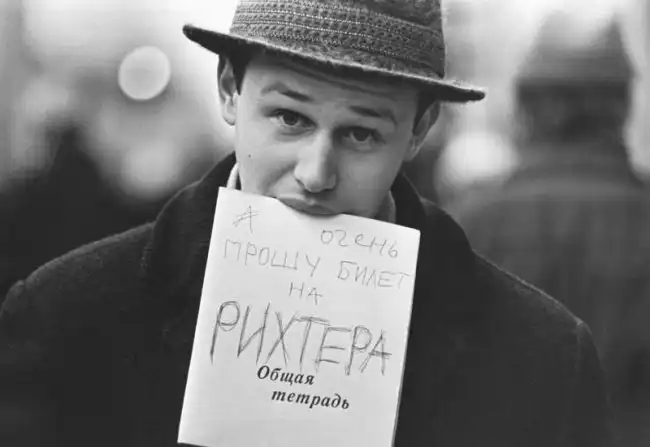 очень
ПРОШУ БИЛЕТ
НА
РИХТЕРА
Общая
тетрадь